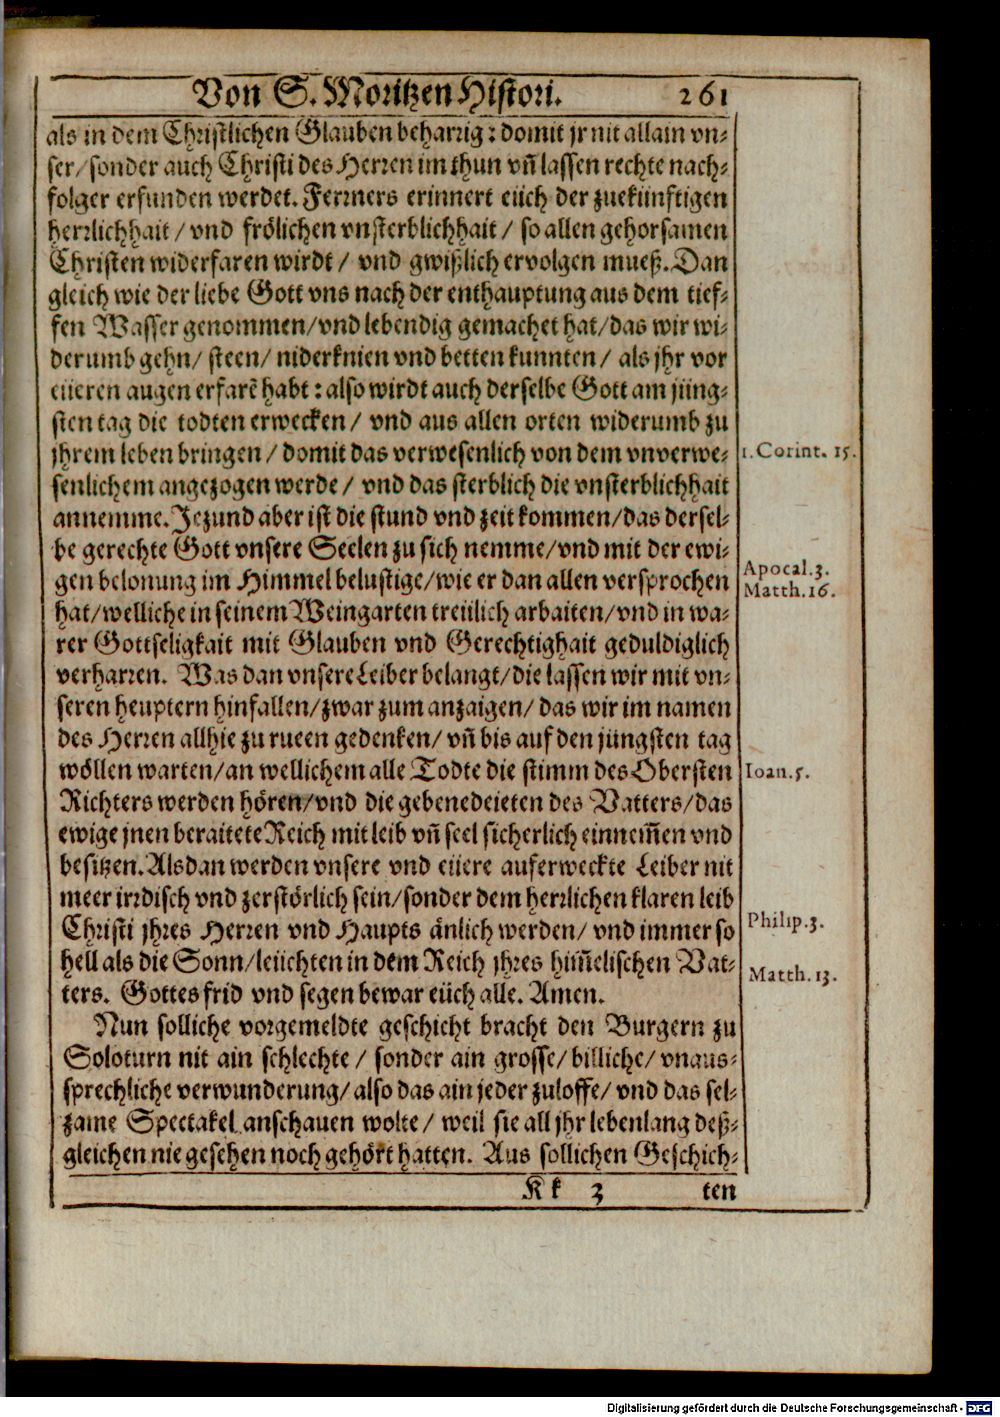 Von S. Moritzen Histori. 261
als in dem Christlichen Glauben beharrig: domit jr nit allain vn-
ser/ sonder auch Christi des Herren im thun vñ lassen rechte nach-
folger erfunden werdet. Ferrners erinnert eüch der zuekünftigen
herrlichhait/ vnd frölichen vnsterblichhait/ so allen gehorsamen
Christen widerfaren wirdt/ vnd gwißlich ervolgen mueß. Dan
gleich wie der liebe Gott vns nach der enthauptung aus dem tief-
fen Wasser genommen/ vnd lebendig gemachet hat/ das wir wi-
derumb gehn/ steen/ niderknien vnd betten kunnten/ als jhr vor
eüeren augen erfarẽ habt: also wirdt auch derselbe Gott am jüng-
sten tag die todten erwecken/ vnd aus allen orten widerumb zu
jhrem leben bringen/ domit das verwesenlich von dem vnverwe-
1. Corint. 15.
senlichem angezogen werde/ vnd das sterblich die vnsterblichhait
annemme. Jezund aber ist die stund vnd zeit kommen/ das dersel-
be gerechte Gott vnsere Seelen zu sich nemme/ vnd mit der ewi-
gen belonung im Himmel belustige/ wie er dan allen versprochen
Apocal. 3.
Matth. 16.
hat/ welliche in seinem Weingarten treülich arbaiten/ vnd in wa-
rer Gottseligkait mit Glauben vnd Gerechtighait geduldiglich
verharren. Was dan vnsere Leiber belangt/ die lassen wir mit vn-
seren heuptern hinfallen/ zwar zum anzaigen/ das wir im namen
des Herren allhie zu rueen gedenken/ vñ bis auf den jüngsten tag
wöllen warten/ an wellichem alle Todte die stimm des Obersten
Ioan. 5.
Richters werden hören/ vnd die gebenedeieten des Vatters/ das
ewige jnen beraitete Reich mit leib vñ seel sicherlich einnem̃en vnd
besitzen. Alsdan werden vnsere vnd eüere auferweckte Leiber nit
meer irrdisch vnd zerstörlich sein/ sonder dem herrlichen klaren leib
Christi jhres Herren vnd Haupts änlich werden/ vnd immer so
Philip. 3.
hell als die Sonn/ leüchten in dem Reich jhres him̃elischen Vat-
Matth. 13.
ters. Gottes frid vnd segen bewar eüch alle. Amen.
Nun solliche vorgemeldte geschicht bracht den Burgern zu
Soloturn nit ain schlechte/ sonder ain grosse/ billiche/ vnaus-
sprechliche verwunderung/ also das ain jeder zuloffe/ vnd das sel-
zame Spectakel anschauen wolte/ weil sie all jhr lebenlang deß-
gleichen nie gesehen noch gehört hatten. Aus sollichen Geschich-
Kk 3 ten
Digitalisierung gefördert durch die Deutsche Forschungsgemeinschaft - DFG